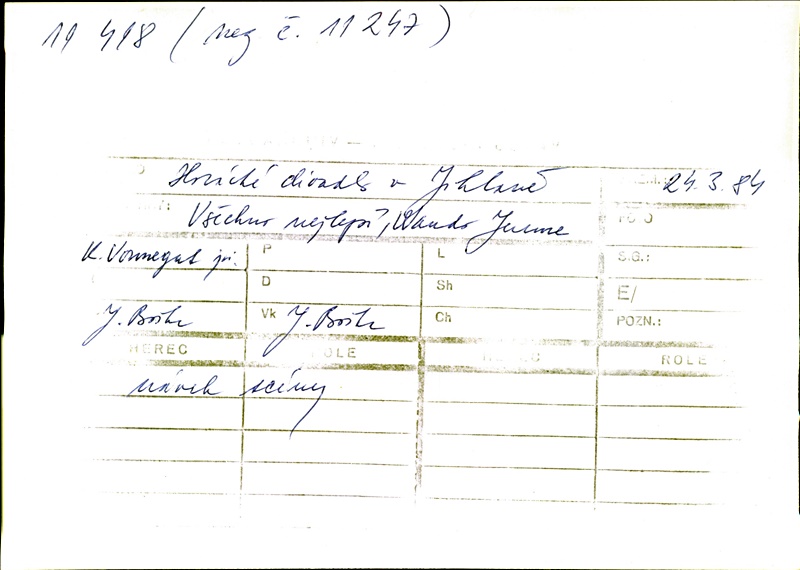 11 418 (neg č. 11 247)
Horácké divadlo v Jihlavě 24.3.84
Všechno nejlepší, Wando June
K. Vonnegut jr. P L S.G.:
D Sh E/
Vk Ch POZN.:
HEREC ROLE HEREC ROLE
návrh scény